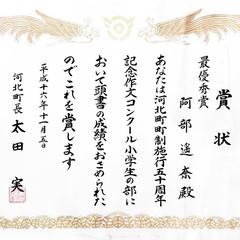 賞状
最優秀賞
阿部遥奈殿
あなたは河北町町制施行五十周年
記念作文コンクール小学生の部に
おいて頭書の成績をおさめられた
のでこれを賞します
平成十六年十一月五日
河北町長 太田 実